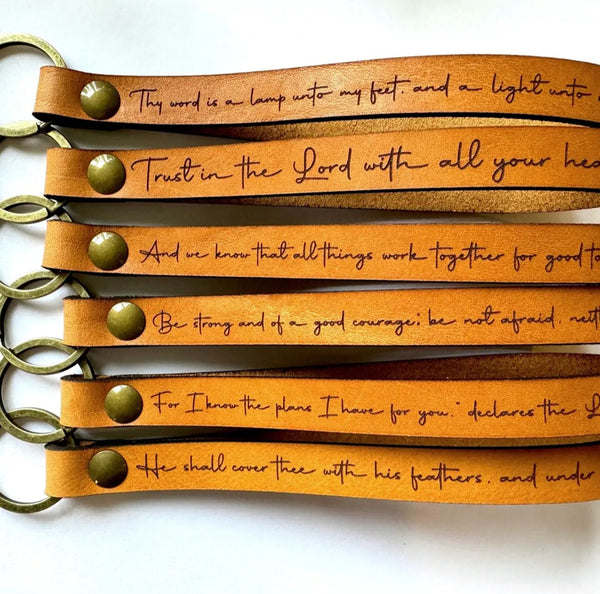 Thy word is a lamp unto my feet. and a light unto
Trust in the Lord with all your hea
And we know that all things work together for good to
Be strong and of a good courage; be not afraid, neith
For I know the plans I have for you," declares the L
He shall cover thee with his feathers, and under